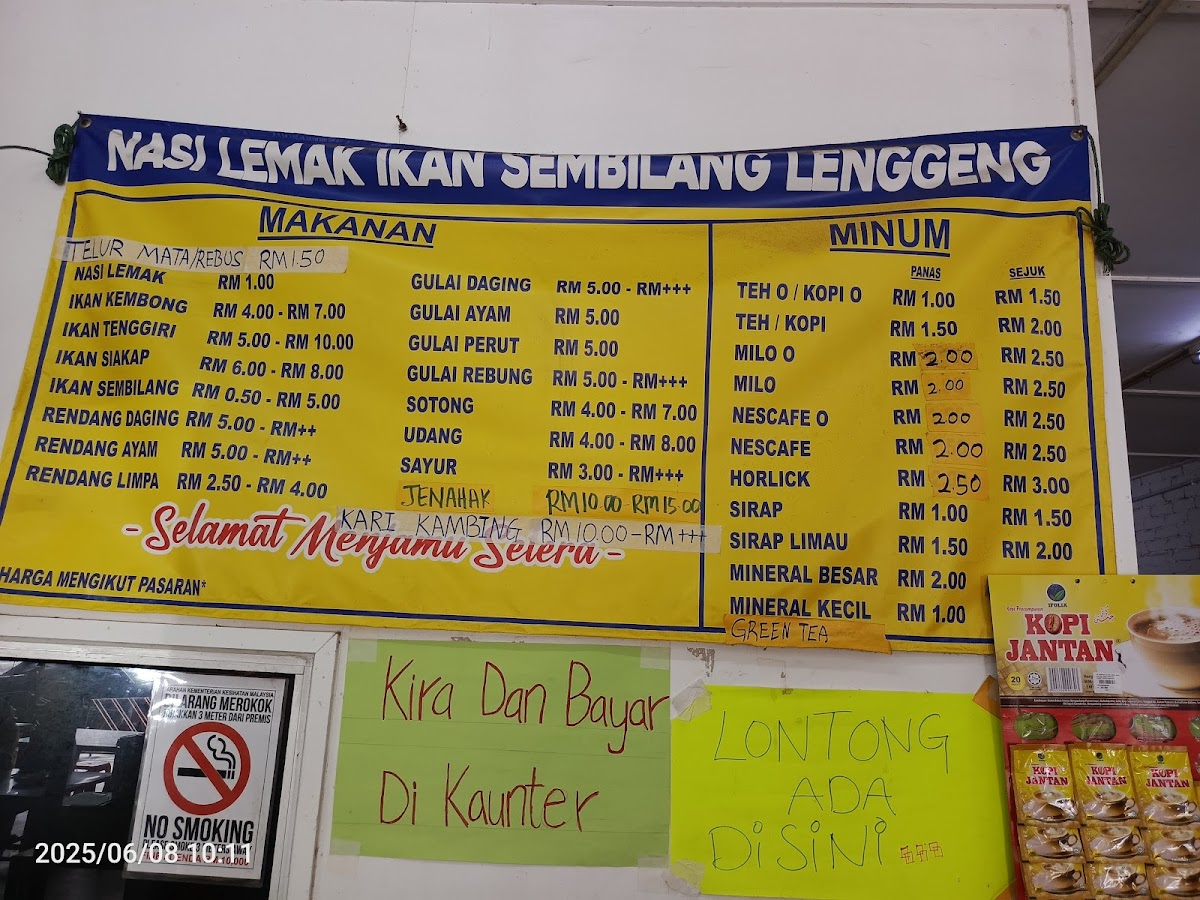 NASI LEMAK IKAN SEMBILANG LENGGENG
MAKANAN
TELUR MATA/REBUS RM1.50
NASI LEMAK RM 1.00
IKAN KEMBONG RM 4.00 - RM 7.00
IKAN TENGGIRI RM 5.00 - RM 10.00
IKAN SIAKAP RM 6.00 - RM 8.00
IKAN SEMBILANG RM 0.50 - RM 5.00
RENDANG DAGING RM 5.00 - RM++
RENDANG AYAM RM 5.00 - RM++
RENDANG LIMPA RM 2.50 - RM 4.00
GULAI DAGING RM 5.00 - RM+++
GULAI AYAM RM 5.00
GULAI PERUT RM 5.00
GULAI REBUNG RM 5.00 - RM+++
SOTONG RM 4.00 - RM 7.00
UDANG RM 4.00 - RM 8.00
SAYUR RM 3.00 - RM+++
JENAHAK RM10.00-RM15.00
KARI KAMBING RM10.00-RM+++
-Selamat Menjamu Selera-
HARGA MENGIKUT PASARAN*
MINUM
PANAS SEJUK
TEH O / KOPI O RM 1.00 RM 1.50
TEH / KOPI RM 1.50 RM 2.00
MILO O RM 2.00 RM 2.50
MILO RM 2.00 RM 2.50
NESCAFE O RM 2.00 RM 2.50
NESCAFE RM 2.00 RM 2.50
HORLICK RM 2.50 RM 3.00
SIRAP RM 1.00 RM 1.50
SIRAP LIMAU RM 1.50 RM 2.00
MINERAL BESAR RM 2.00
MINERAL KECIL RM 1.00
GREEN TEA
Kira Dan Bayar
Di Kaunter
LONTONG
ADA
DISINI
ARAHAN KEMENTERIAN KESIHATAN MALAYSIA
DILARANG MEROKOK
3 METER DARI PREMIS
NO SMOKING
2025/06/08 10:11
IFOLIA
KOPI
JANTAN
20
KOPI
JANTAN
KOPI
JANTAN
KOPI
JANTAN